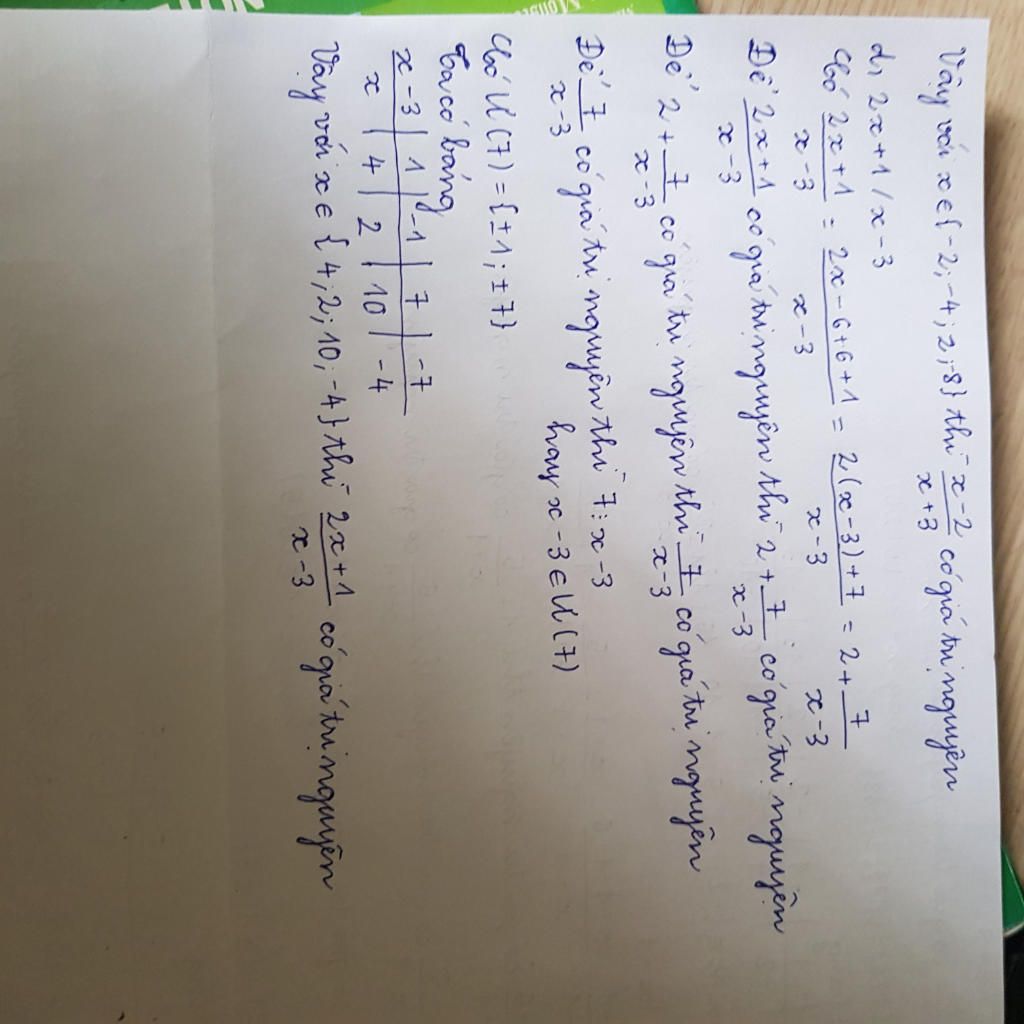 Vậy với x ∈ {-2; -4; 2; -8} thì x-2/x+3 có giá trị nguyên
d, 2x+1/x-3
Có 2x+1/x-3 = 2x-6+6+1/x-3 = 2(x-3)+7/x-3 = 2+7/x-3
Để 2x+1/x-3 có giá trị nguyên thì 2+7/x-3 có giá trị nguyên
Để 2+7/x-3 có giá trị nguyên thì 7/x-3 có giá trị nguyên
Để 7/x-3 có giá trị nguyên thì 7⋮x-3
hay x-3 ∈ Ư(7)
Có Ư(7) = {±1; ±7}
Ta có bảng
x-3 | 1 | -1 | 7 | -7
x | 4 | 2 | 10 | -4
Vậy với x ∈ {4; 2; 10; -4} thì 2x+1/x-3 có giá trị nguyên